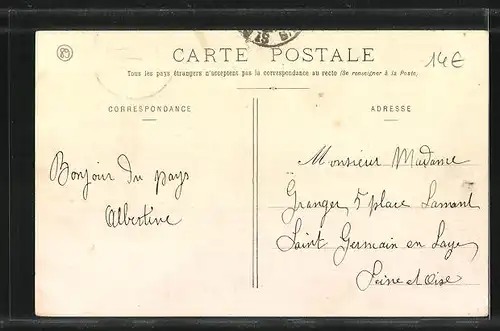 89
14€
CARTE POSTALE
Tous les pays étrangers n'acceptent pas la correspondance au recto (Se renseigner à la Poste).
CORRESPONDANCE
ADRESSE
Bonjour du pays
Albertine
Monsieur Madame
Granger 5 place Lamant
Saint Germain en Laye
Seine et Oise